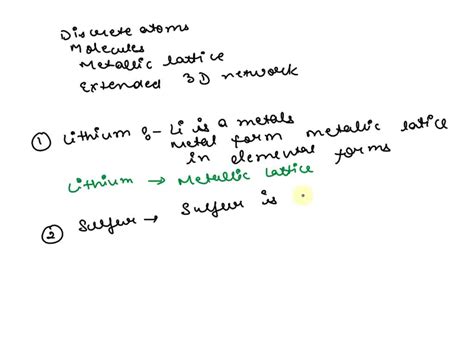 Discrete atoms
Molecules
Metallic lattice
Extended 3D network
① Lithium :- Li is a metals
Metal form metallic latice
in elemental forms
Lithium → Metallic Lattice
② Sulfur → Sulfur is